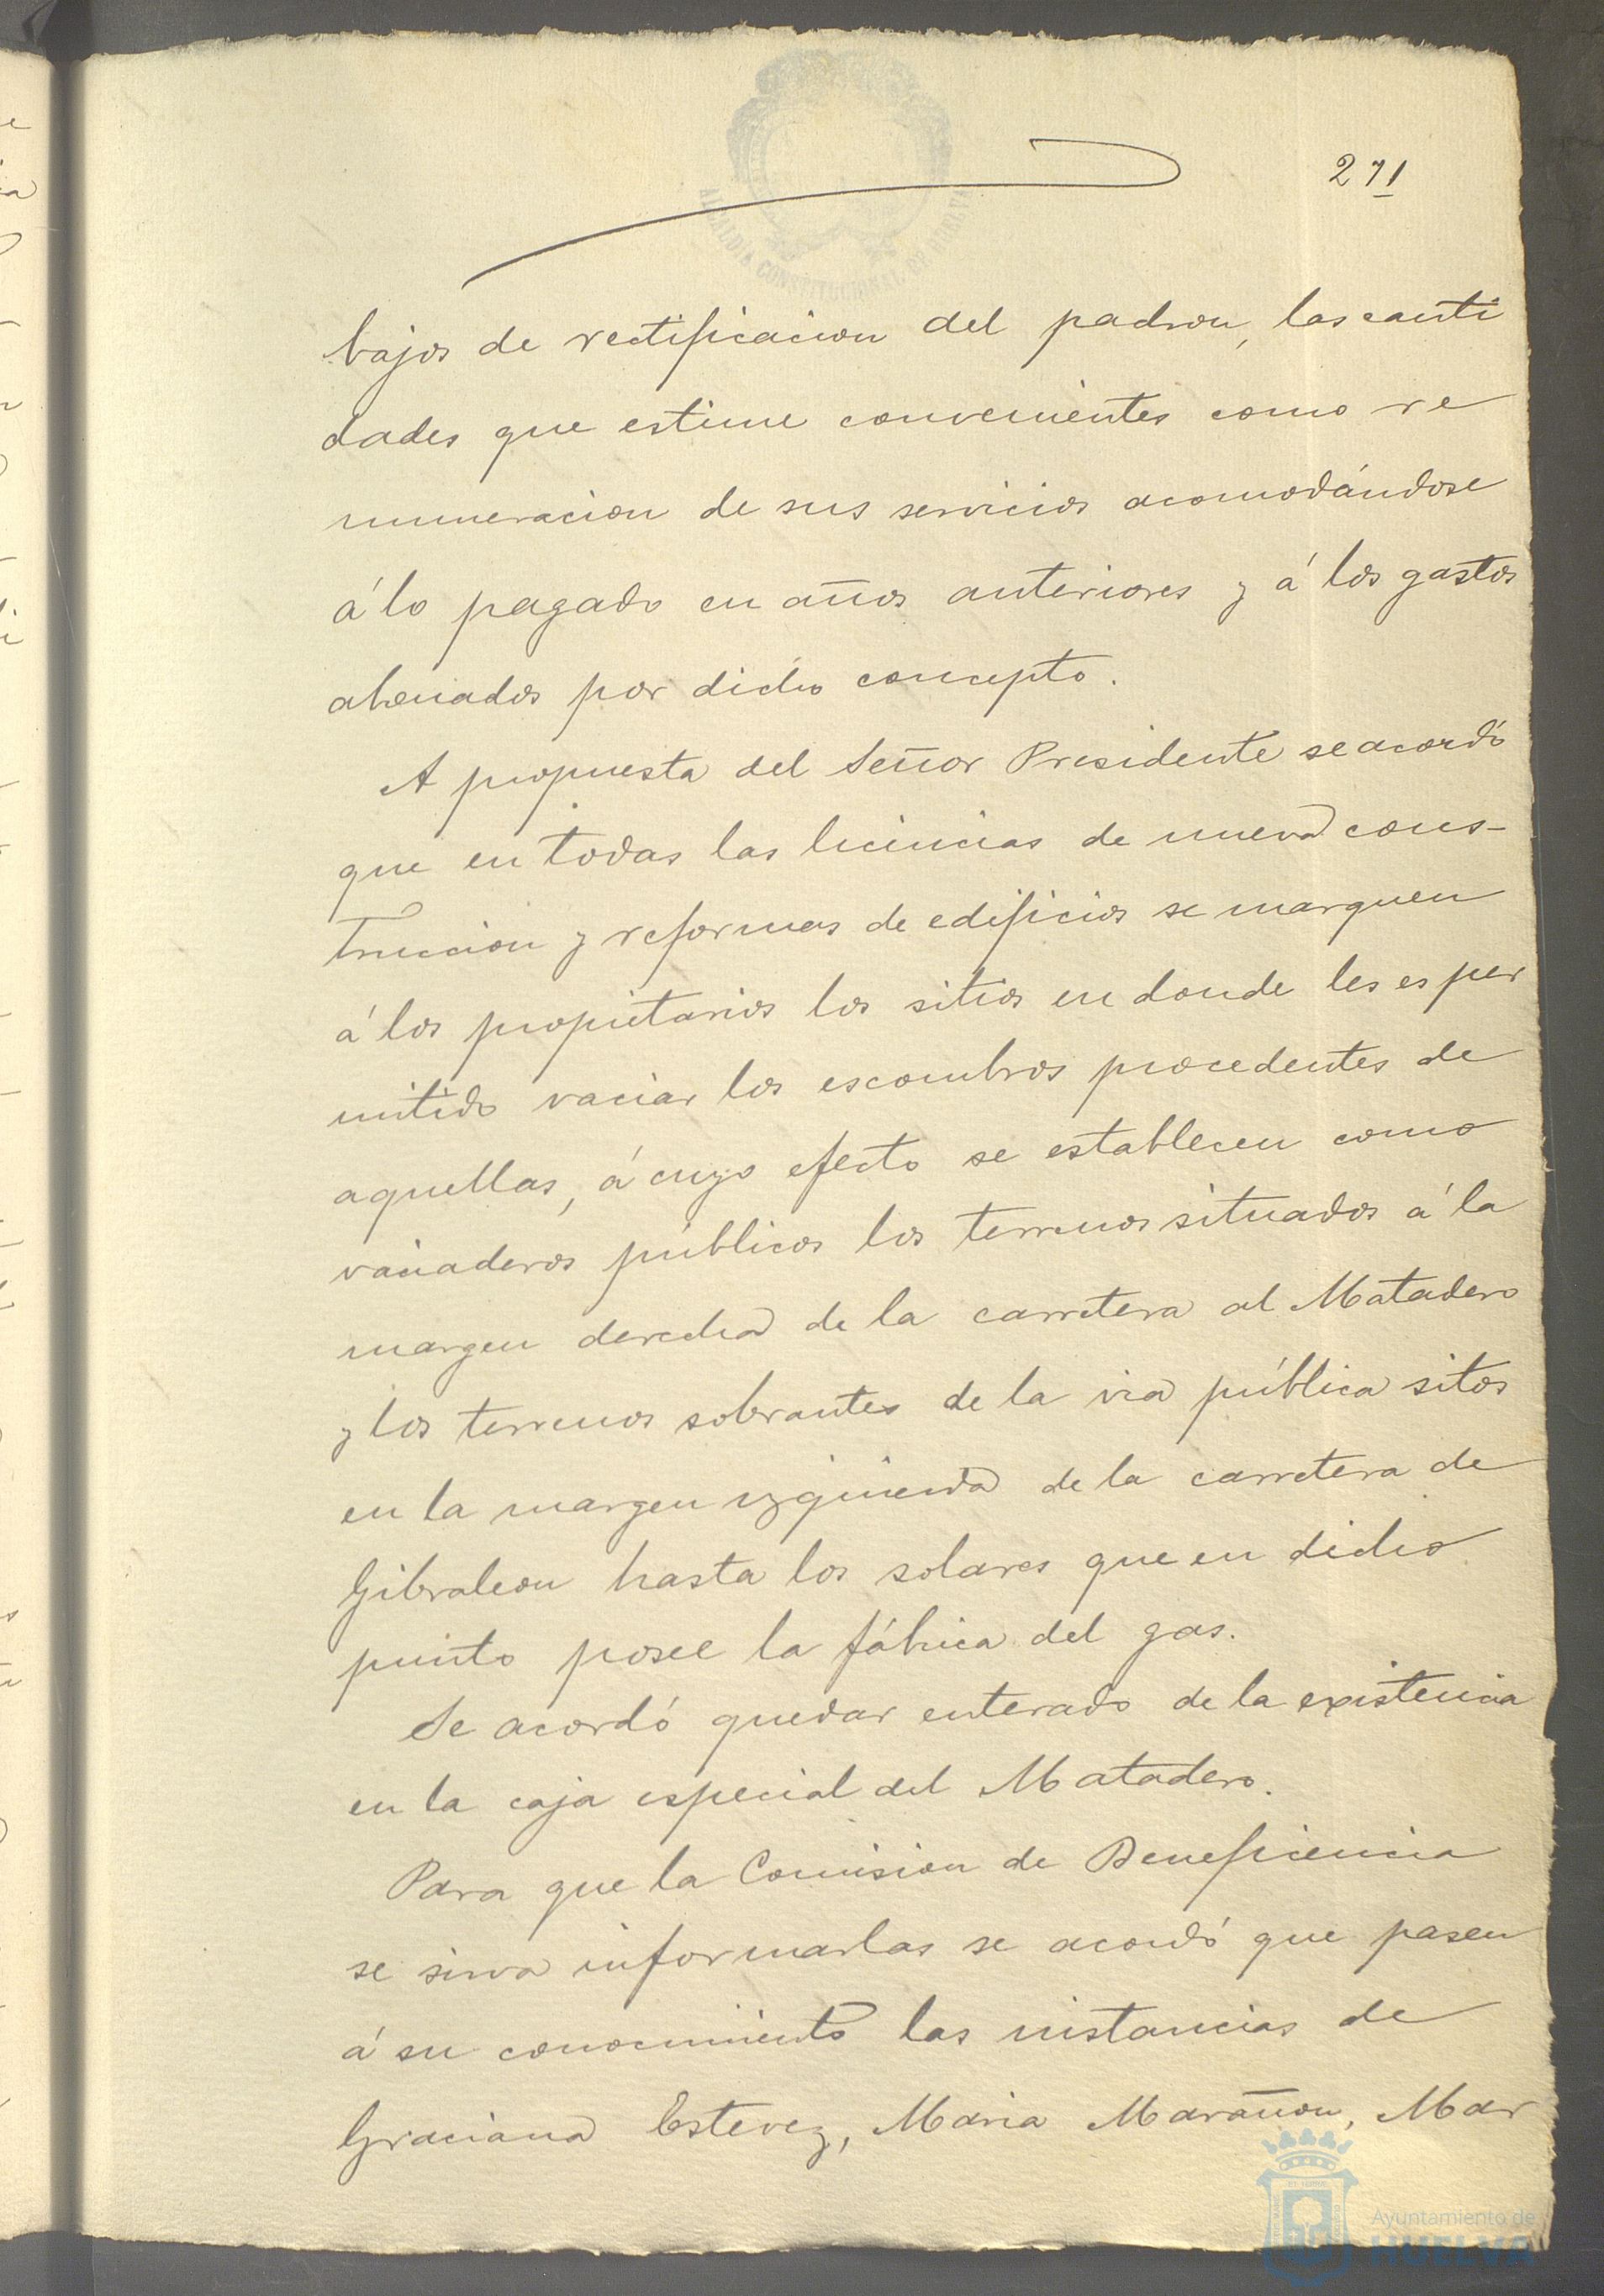 271
ALCALDIA CONSTITUCIONAL DE HUELVA
bajos de rectificacion del padron, las canti
dades que estime convenientes como re
muneracion de sus servicios acomodándose
á lo pagado en años anteriores y á los gastos
abonados por dicho concepto.
A propuesta del Señor Presidente se acordó
que en todas las licencias de nueva cons-
truccion y reformas de edificios se marquen
á los propietarios los sitios en donde les es per
mitido vaciar los escombros procedentes de
aquellas, á cuyo efecto se establecen como
vaciaderos públicos los terrenos situados á la
margen derecha de la carretera al Matadero
y los terrenos sobrantes de la via pública sitos
en la margen izquierda de la carretera de
Gibraleon hasta los solares que en dicho
punto posee la fábrica del gas.
Se acordó quedar enterado de la existencia
en la caja especial del Matadero.
Para que la Comision de Beneficencia
se sirva informarlas se acordó que pasen
á su conocimiento las instancias de
Graciana Estevez, Maria Marañon, Mar
Ayuntamiento de
HUELVA